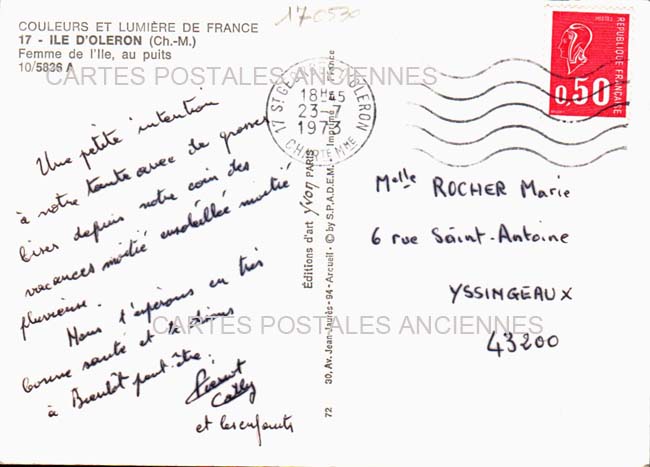 170530
COULEURS ET LUMIÈRE DE FRANCE
17 - ILE D'OLERON (Ch.-M.)
Femme de l'Ile, au puits
10/5836 A
CARTES POSTALES ANCIENNES
Une petite intention
à notre tante avec de grosses
bises depuis notre coin des
vacances moitié ensoleillée moitié
pluvieuse.
Nous t'espérons en très
bonne santé et te disons
à Bientôt peut-être.
Cathy
et les enfants
Éditions d'art Yvon PARIS
30, Av. Jean-Jaurès - 94 - Arcueil - © by S.P.A.D.E.M. Imprimé en France
72
17 ST GEORGES OLERON
18H45
23-7
1973
CHARTE MME
POSTES
REPUBLIQUE FRANÇAISE
0,50
Melle ROCHER Marie
6 rue Saint-Antoine
YSSINGEAUX
43200
CARTES POSTALES ANCIENNES